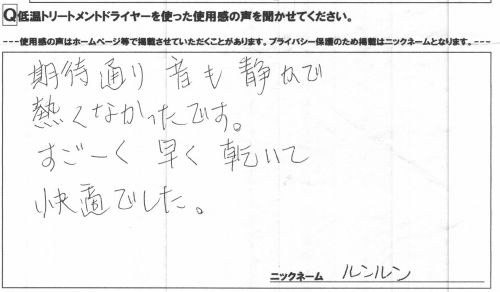 Q低温トリートメントドライヤーを使った使用感の声を聞かせてください。
---使用感の声はホームページ等で掲載させていただくことがあります。プライバシー保護のため掲載はニックネームとなります。---
期待通り 音も 静かで
熱くなかったです。
すごーく 早く 乾いて
快適でした。
ニックネーム ルンルン